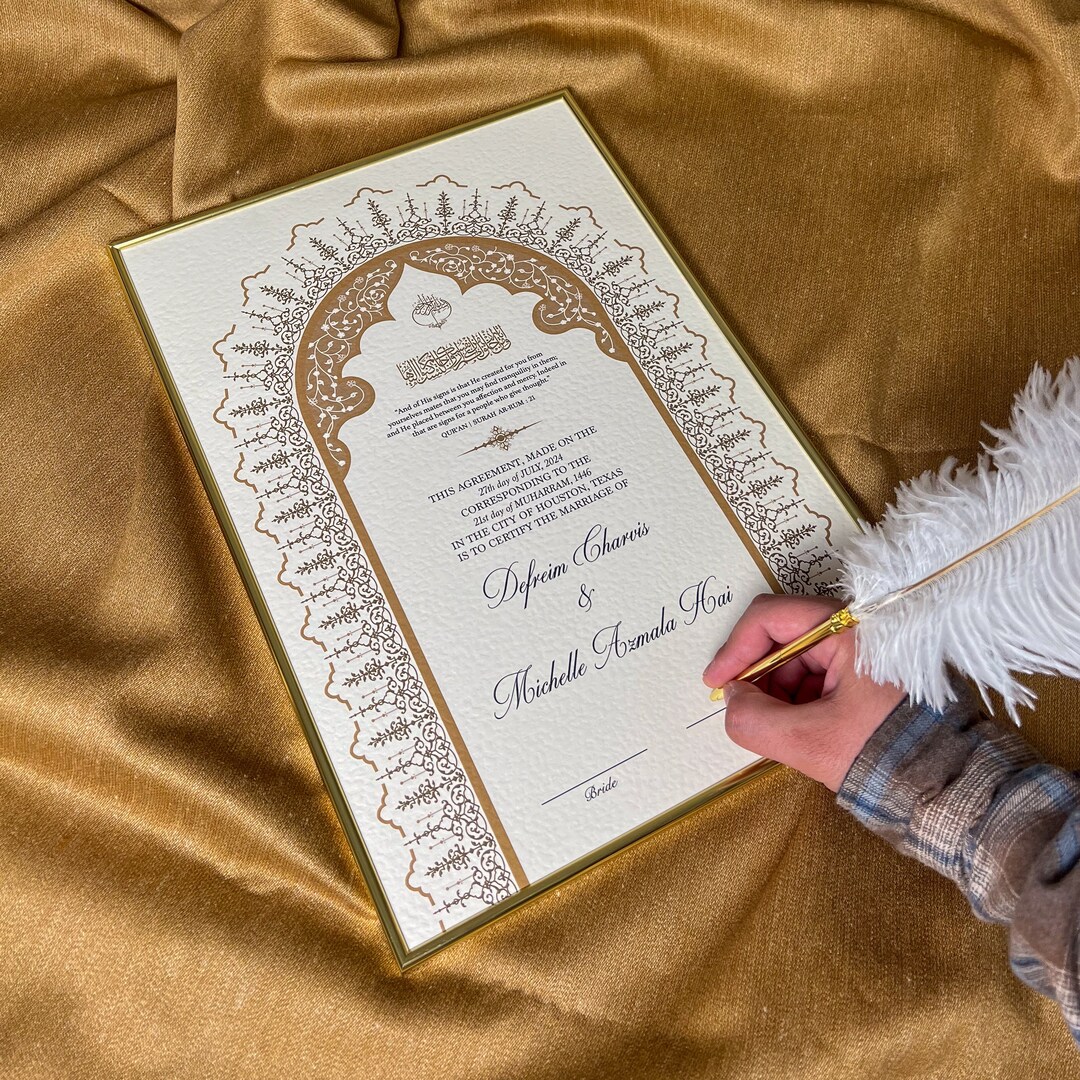 "And of His signs is that He created for you from
yourselves mates that you may find tranquility in them;
and He placed between you affection and mercy. Indeed in
that are signs for a people who give thought."
QUR'AN | SURAH AR-RUM : 21
THIS AGREEMENT, MADE ON THE
27th day of JULY, 2024
CORRESPONDING TO THE
21st day of MUHARRAM, 1446
IN THE CITY OF HOUSTON, TEXAS
IS TO CERTIFY THE MARRIAGE OF
Defreim Charvis
&
Michelle Azmala Hai
Bride